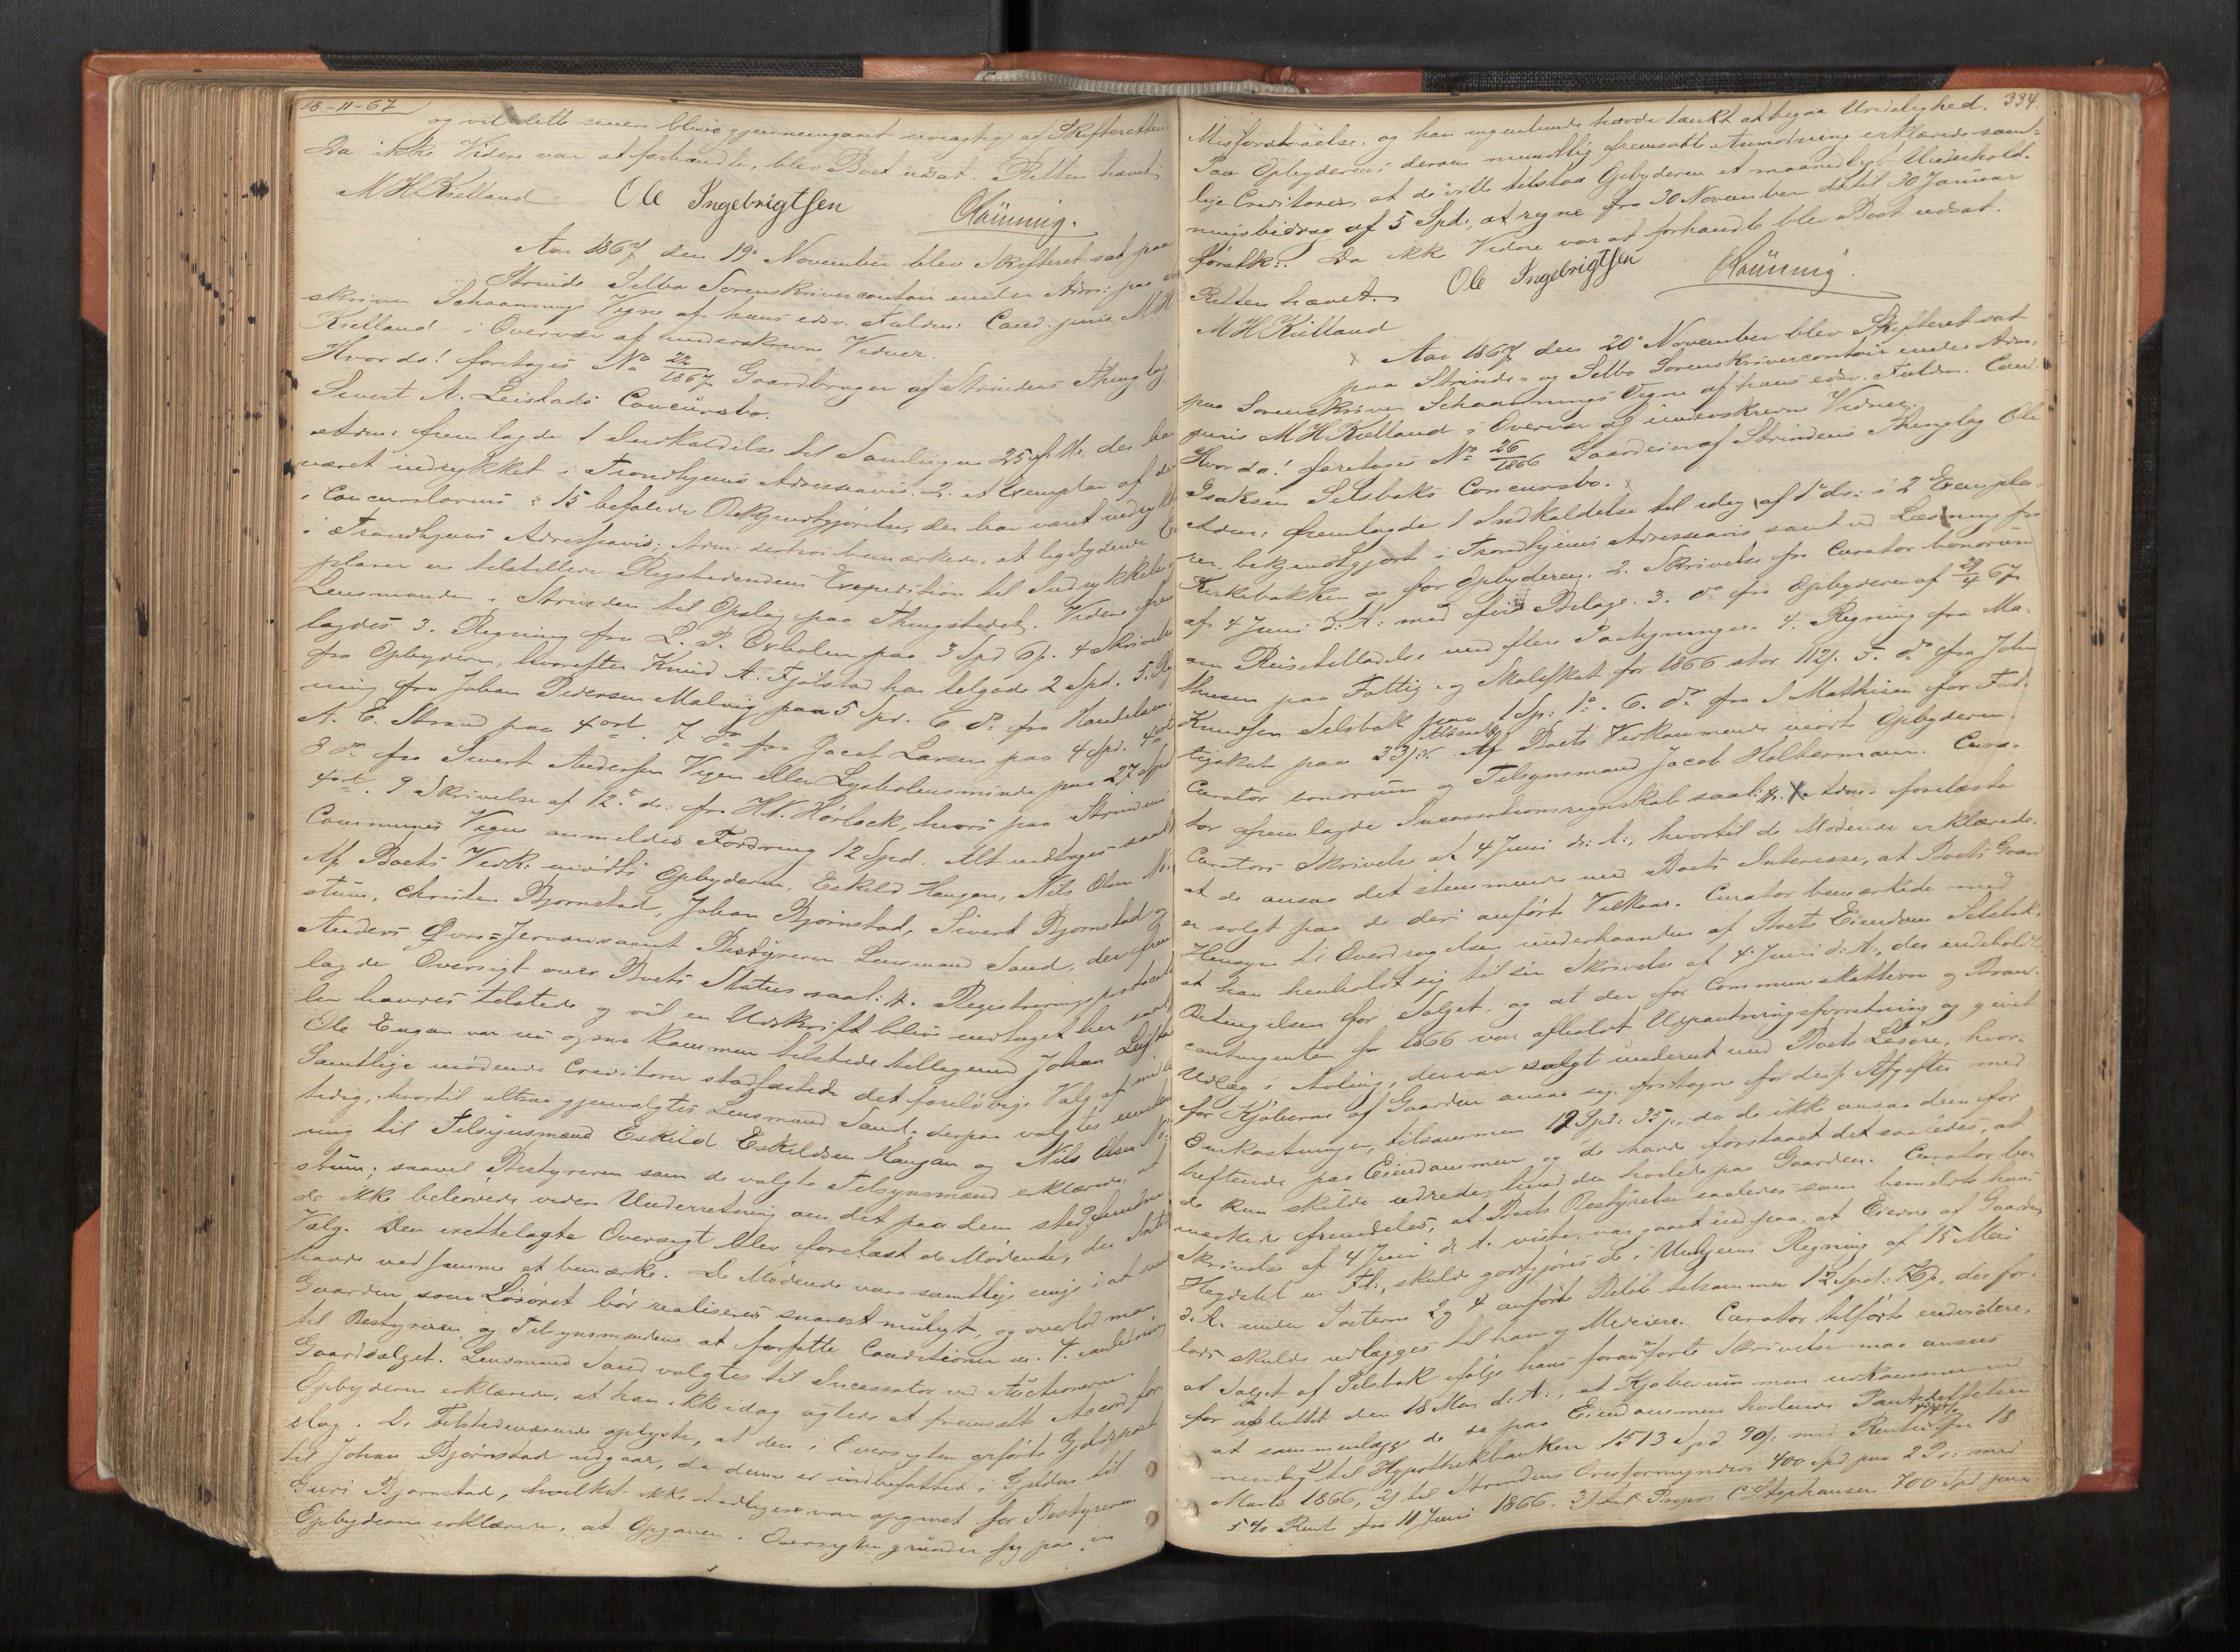 18-11-67
og vil dette senere blive gjennemgaaet nøiagtig af Skifteretten
Da ikke Videre var at forhandle, blev Boet udsat. Retten hævet
MHKielland Ole Ingebrigtsen Rønning.
Aar 1867 den 19de November blev Skifteret sat paa
Strinde Selbo Sorenskrivercontoir under Adm: paa Soren
skriver Schaannings Vegne af hans edsv. Fuldm: Cand. juris M H
Kielland i Overvær af underskrevne Vidner.
Hvor da! foretoges No 22/1867 Gaardbruger af Strindens Thinglag
Sivert A. Leistads Concursbo.
Adm: fremlagde 1 Indkaldelse til Samlingen 25 f. M. der har
været indrykket i Trondhjems Adresseavis. 2. et Exemplar af den
i Concurslovens § 15 befalede Bekjendtgjørelse, der har været indrykket
i Trondhjems Adresseavis; Adm: derhos bemærkede, at ligelydende Ex
plarer er tilstillede Rigstidendens Expedition til Indrykkelse og
Lensmanden i Strinden til Opslag paa Thingstedet. Videre frem
lagdes 3. Regning fra L. P. Oxholm paa 3 Spd 6 s. 4 Skrivelse
fra Opbyderen, hvorefter Knud A. Fjølstad har tilgode 2 Spd. 5. Reg
ning fra Johan Pedersen Malvig paa 5 Spd. 6 do fra Handelsm.
A. E. Strand paa 4 ort. 7 do fra Jacob Larsen paa 4 Spd. 4 ort
8 do fra Sivert Andersen Vigen eller Lysholmsminde paa 27 Spd
4 ort. 9 Skrivelse af 12te ds: fra H. N. Hørlock, hvori paa Strindens
Communes Vegne anmeldes Fordring 12 Spd. Alt vedtoges saal
Af Boets Vedk: mødte Opbyderen, Eskild Haugan, Nils Olsen No
stum, Christen Bjørnstad, Johan Bjørnstad, Sivert Bjørnstad og
Anders Øvre=Jervan samt Bestyreren Lensmand Sand, der frem
lagde Oversigt over Boets Status saal: #. Registreringsprotocol
len havdes tilstede og vil en Udskrift blive vedtaget her saal
Ole Engan var nu ogsaa kommen tilstede tilligemed Johan Leistad
Samtlige mødende Creditorer stadfæstede det foreløbige Valg af midler
tidig, hvortil altsaa gjenvalgtes Lensmand Sand; derpaa valgtes
ning til Tilsynsmænd Eskild Eskildsen Haugan og Nils Olsen No
stum; saavel Bestyreren som de valgte Tilsynsmænd erklærede, at
de ikke behøvede videre Underretning om det paa dem sted fundne
Valg. Den rettelagte Oversigt blev forelæst de Mødende, der Intet
havde ved samme at bemærke. De Mødende vare samtlige enige i at saavel
Gaarden som Løsøret bør realiseres snarest muligt, og overlod man
til Bestyreren og Tilsynsmændene at forfatte Conditioner m. V. anledning
Gaardsalget. Lensmand Sand valgtes til Incassator ved Auctionerne.
Opbyderen erklærede, at han ikke idag agtede at fremsætte Accordfor
slag. De Tilstedeværende oplyste, at den i Oversigten opførte Gjeldspost
til Johan Bjørnstad udgaar, da denne er indbefattet i Gjelden til
Guri Bjørnstad, hvilket ikke tydeligere var opgivet for Bestyreren
Opbyderen erklærede, at Opgaven i Oversigten grunder sig paa en
334.
Misforstaaelse, og han ingenlunde havde tænkt at begaa Uredelighed.
Paa Opbyderens derom mundtlig fremsatte Anmodning erklærede samt-
lige Creditorer, at de ville tilstaa Opbyderen et maanedligt Underhold-
ningsbidrag af 5 Spd:, at regne fra 30 November til 30 Januar
førstk:. Da ikke Videre var at forhandle blev Boet udsat.
Retten hævet. Ole Ingebrigtsen Rønning.
MHKielland
Aar 1867 den 20de November blev Skifteret sat
paa Strinde- og Selbo Sorenskrivercontoir under Adm:
paa Sorenskriver Schaannings Vegne af hans edsv. Fuldm. Cand.
juris MHKielland i Overvær af underskrevne Vidner.
Hvor da! foretoges No 26/1866 Gaardeier af Strindens Thinglag Ole
Isaksen Selsbaks Concursbo.
Adm: fremlagde 1 Indkaldelse til idag af 1ste ds: i 2 Exempla-
rer, bekjendtgjort i Trondhjems Adresseavis samt ved Læsning fra
Kirkebakken og for Opbyderen. 2. Skrivelse fra Curator bonorum
af 4 Juni d: A: med fire Bilage. 3. do fra Opbyderen af 29/4 67
om Reisetilladelse med flere Paategninger. 4. Regning fra Ma-
thiesen paa Fattig- og Skoleskat for 1866 stor 112 s. 5. do fra John
Knudsen Selsbak paa 1 Sp: 1 o. 6. do fra J Mathisen for Fat-
tigskat paa 33 s. Af Boets Vedkommende mødte Opbyderen,
Curator bonorum og Tilsynsmand Jacob Holtermann. Cura-
tor fremlagde Incassationsregnskab saal: #. X Adm: forelæste
Curators Skrivelse af 4 Juni d: A:, hvortil de Mødende erklærede,
at de ansaa det stemmende med Boets Interesse, at Boets Gaard
er solgt paa de deri anførte Vilkaar. Curator bemærkede med
Hensyn til Overdragelsen underhaanden af Boets Eiendom Selsbak,
at han henholdt sig til sin Skrivelse af 4 Juni d: A:, der indeholdt
Betingelsen for Salget, og at der for Communeskatterne og Bran-
contingenten for 1866 var afholdt Udpantningsforretning og givet
Udlæg i Avling, der var solgt underet med Boets Løsøre, hvor-
for Kjøberne af Gaarden ansaa sig fritagne for disse Afgifter med
Omkostninger, tilsammen 12 Spd: 35 s., da de ikke ansaa dem for
heftende paa Eiendommen og de havde forstaaet det saaledes, at
de kun skulde udrede, hvad der hvilede paa Gaarden. Curator be-
mærkede fremdeles, at Boets Bestyrelse saaledes som benævnte hans
Skrivelse af 4 Juni d: A. viste, var gaaet ind paa, at Eierne af Gaarden
Hegdahl m Fl:, skulde godtgjøres de i Uulgjens Regning af 15 Mai
d: A: under Posterne 2 og 4 anførte Beløb tilsammen 12 Spd: , der for-
lods skulde udlægges til ham og Medeiere. Curator tilførte endvidere,
at Salget af Selsbak ifølge hans foranførte Skrivelse maa ansees
for afsluttet den 18 Mai d: A:, at Kjøberne
at sammenlægge de paa Eiendommen hvilende Panteheftelser
nemlig 1) til Hypothekbanken 1513 Spd 90 s. med Renter fra 18
Marts 1866, 2) til Strindens Overformynderi 400 Spd paa 2 Pr: med
5 % Rente fra 11 Juni 1866, 3) til Propr: C Stephansen 700 Spd paa